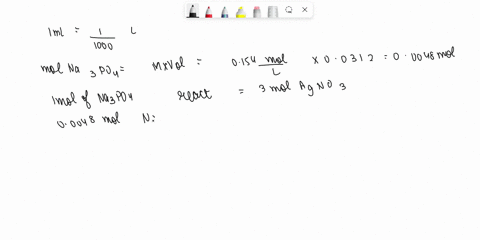 1 mL = 1/1000 L
mol Na3PO4 = M×Vol = 0.154 mol/L × 0.0312 = 0.0048 mol
1 mol of Na3PO4 react = 3 mol AgNO3
0.0048 mol N